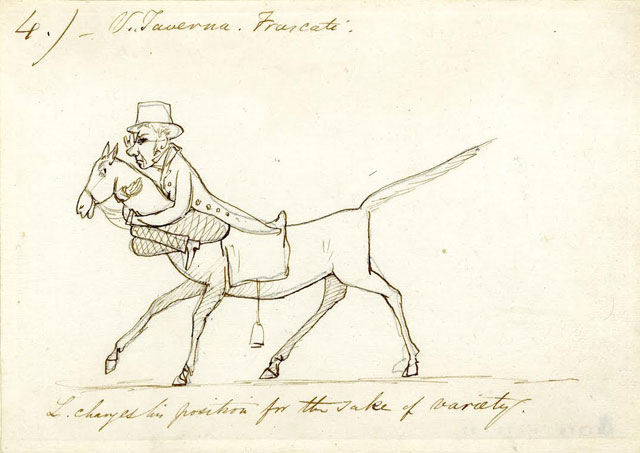 4.) – V. Taverna. Frascati.
L. changes his position for the sake of variety.